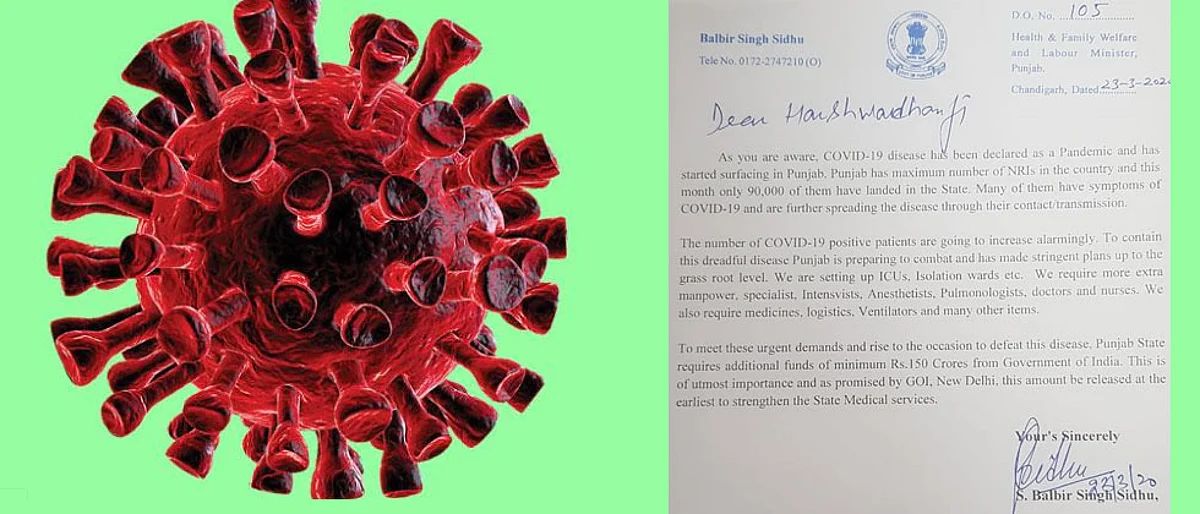 Balbir Singh Sidhu
Tele No. 0172-2747210 (O)
D.O. No. ...105...
Health & Family Welfare
and Labour Minister,
Punjab.
Chandigarh, Dated 23-3-2020
Dear Harshwardhan Ji
As you are aware, COVID-19 disease has been declared as a Pandemic and has
started surfacing in Punjab. Punjab has maximum number of NRIs in the country and this
month only 90,000 of them have landed in the State. Many of them have symptoms of
COVID-19 and are further spreading the disease through their contact/transmission.
The number of COVID-19 positive patients are going to increase alarmingly. To contain
this dreadful disease Punjab is preparing to combat and has made stringent plans up to the
grass root level. We are setting up ICUs, Isolation wards etc. We require more extra
manpower, specialist, Intensvists, Anesthetists, Pulmonologists, doctors and nurses. We
also require medicines, logistics, Ventilators and many other items.
To meet these urgent demands and rise to the occasion to defeat this disease, Punjab State
requires additional funds of minimum Rs.150 Crores from Government of India. This is
of utmost importance and as promised by GOI, New Delhi, this amount be released at the
earliest to strengthen the State Medical services.
Your's Sincerely
Sidhu
23/3/20
S. Balbir Singh Sidhu,